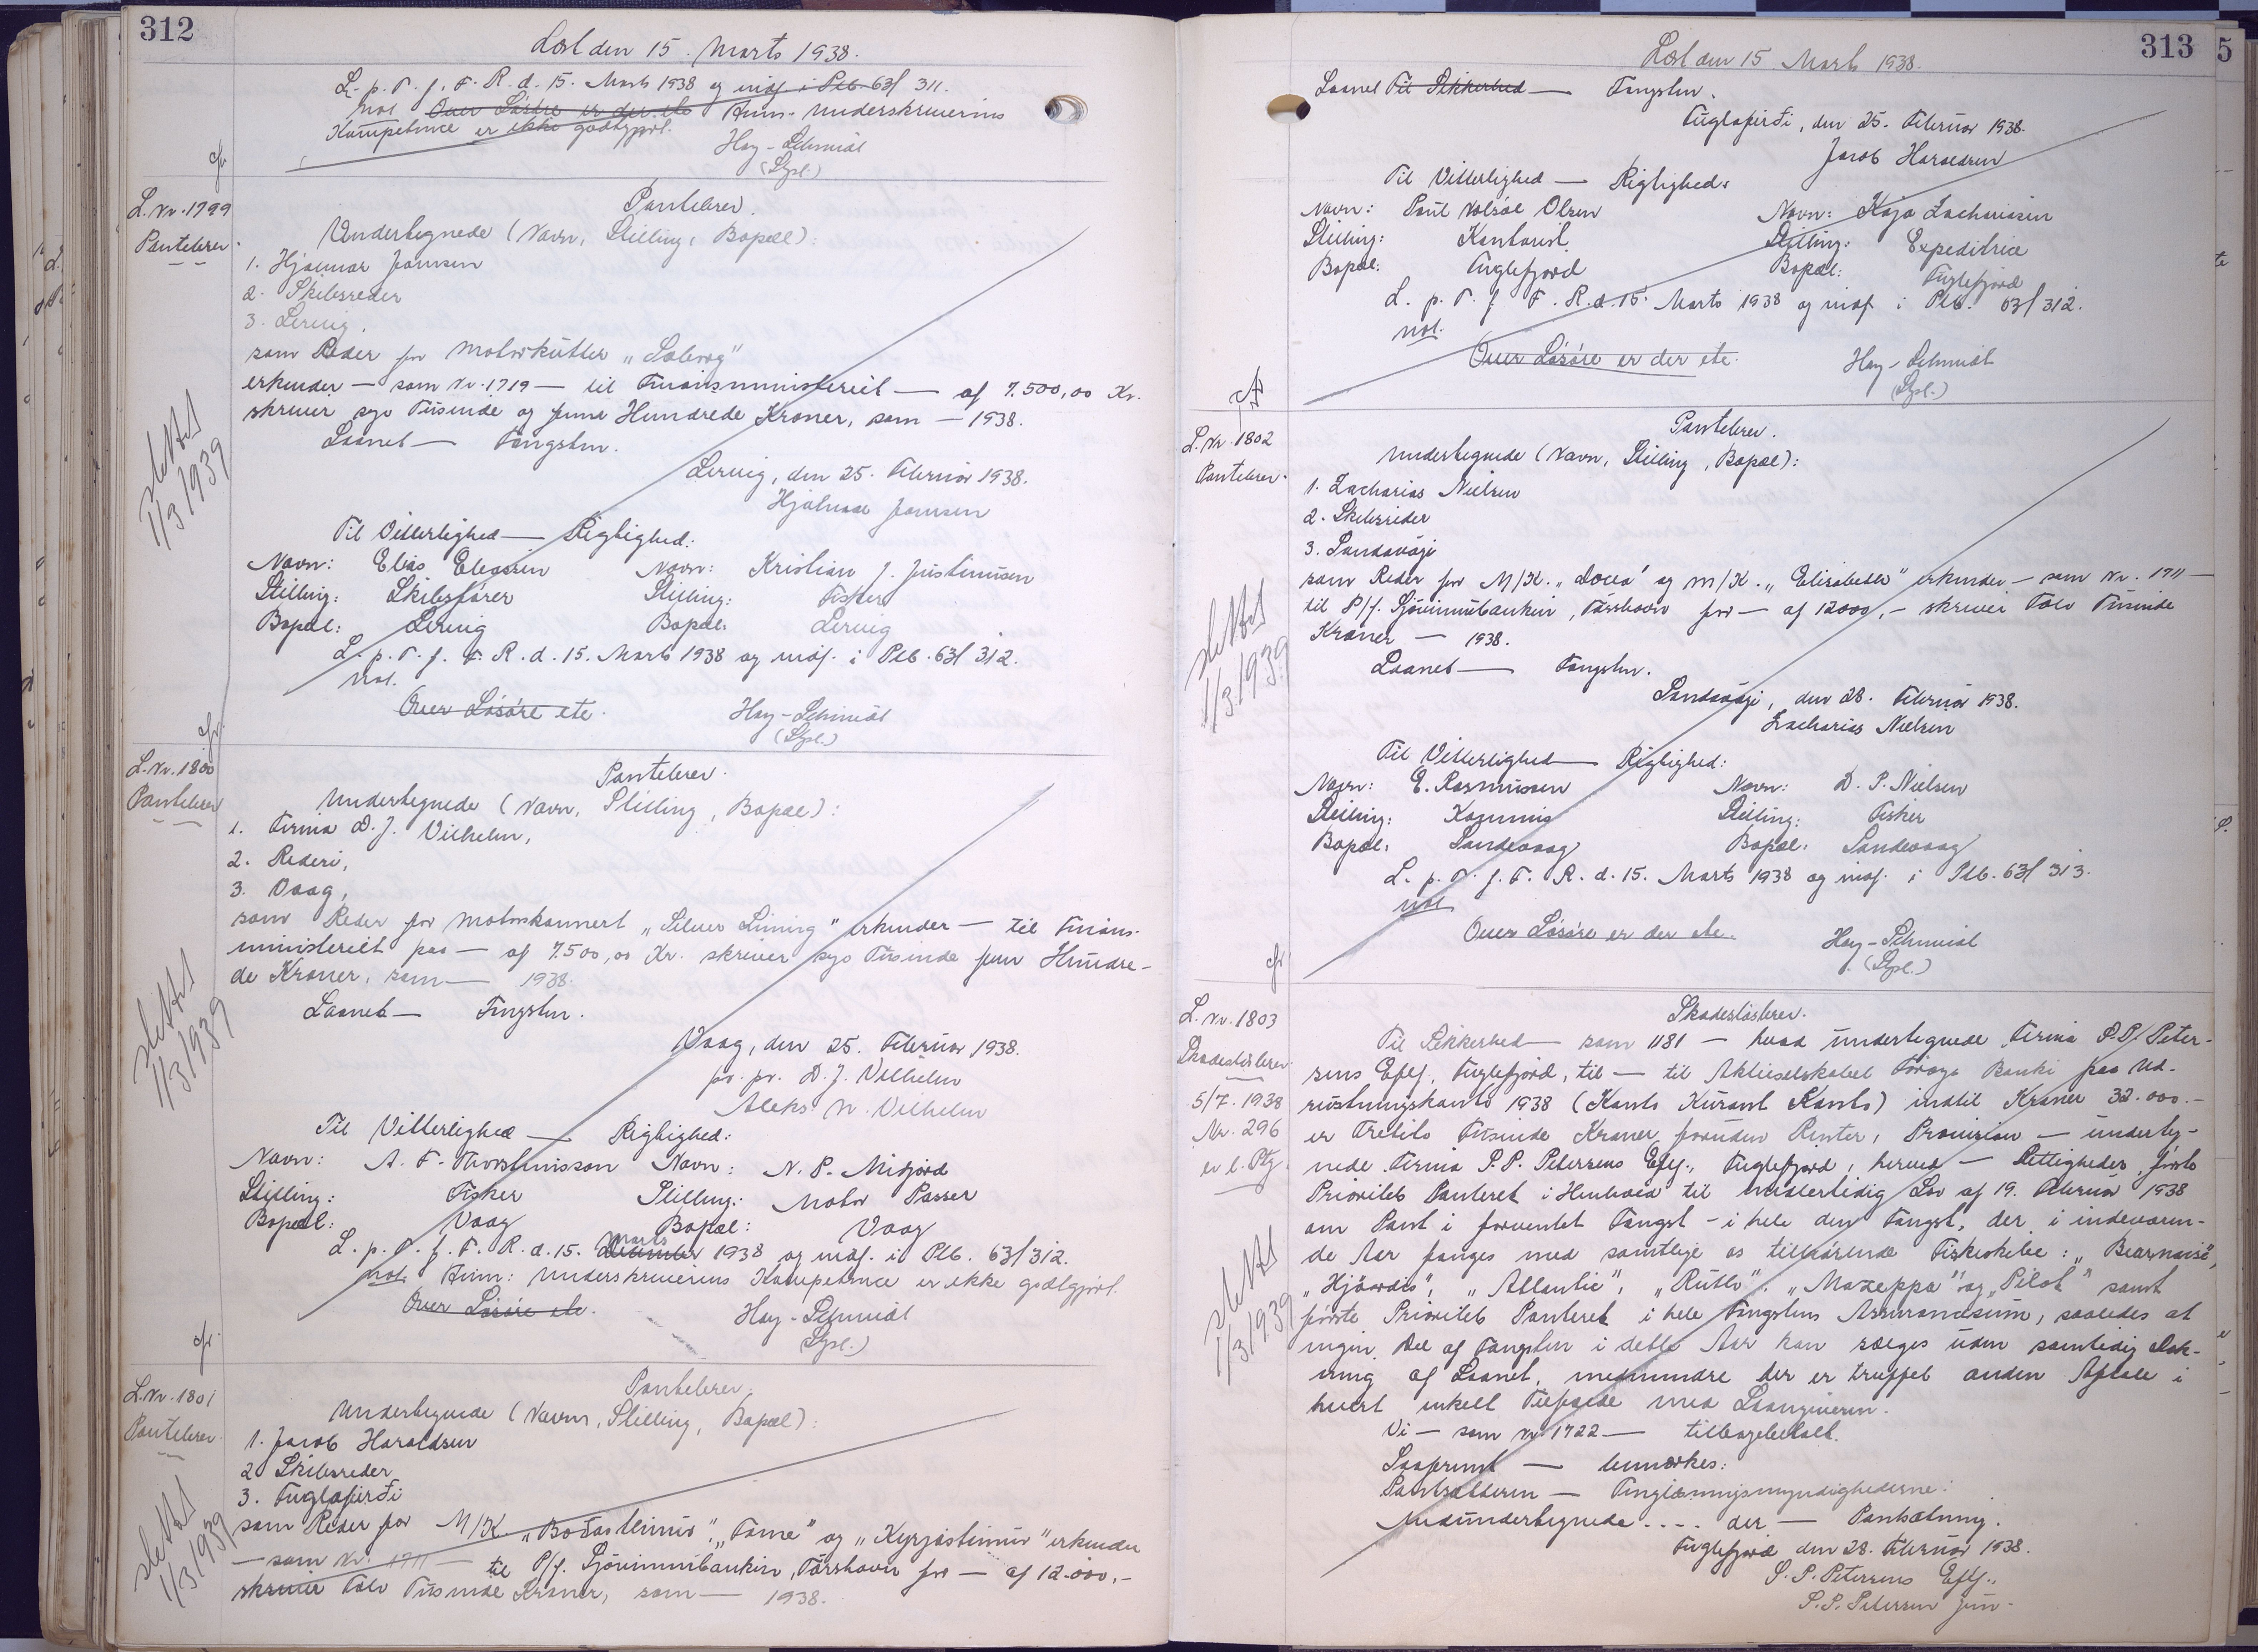 312
Læst den 15. Marts 1938.
L. p. T. f. F. R. d. 15. Marts 1938 og indf. i Ptb. 63/311.
not. Over Løsøre er der etc Anm. Underskriverens
Kompetence er ikke godtgjort.
Hay-Schmidt
(Sgsl.)
cfr
L. Nr. 1799
Pantebrev.
Pantebrev.
Undertegnede (Navn, Stilling, Bopæl):
1. Hjalmar Joensen
2. Skibsreder
3. Lervig,
som Reder for Motorkutter „Solveig"
erkender — som Nr. 1719 — til Finansministeriet — af 7.500,00 Kr.
skriver syv Tusinde og femn Hundrede Kroner, som — 1938.
Laanet — Fangsten.
Lervig, den 25. Februar 1938.
Hjalmar Joensen
Til Vitterlighed — Rigtighed:
Navn: Elias Eliassen Navn: Kristian J. Justinusen
Stilling: Skibsfører Stilling: Fisker
Bopæl: Lervig Bopæl: Lervig
L. p. T. f. F. R. d. 15. Marts 1938 og indf. i Ptb. 63/312.
not.
Over Løsøre etc.
Hay-Schmidt
(Sgsl.)
slettet
1/3 1939
cfr.
L. Nr. 1800
Pantebrev
Pantebrev.
Undertegnede (Navn, Stilling, Bopæl):
1. Firma D. J. Vilhelm,
2. Rederi,
3. Vaag,
som Reder for Motorskonnert „Silver Lining" erkender — til Finans-
ministeriet paa — af 7.500,00 Kr. skriver syv Tusinde fem Hundre-
de Kroner, som — 1938.
Laanet — Fangsten.
Vaag, den 25. Februar 1938.
pr. pr. D. J. Vilhelm
Aleks. W. Vilhelm
Til Vitterlighed — Rigtighed:
Navn: A. F. Thorsteinsson Navn: N. P. Mitfjord
Stilling: Fisker Stilling: Motor Passer
Bopæl: Vaag Bopæl: Vaag
L. p. T. f. F. R. d. 15. Marts 1938 og indf. i Ptb. 63/312.
not. Anm: Underskriverens Kompetence er ikke godtgjort.
Over Løsøre etc.
Hay-Schmidt
(Sgsl.)
slettet
1/3 1939
cfr.
L. Nr. 1801
Pantebrev.
Pantebrev.
Undertegnede (Navn, Stilling, Bopæl):
1. Jacob Haraldsen
2. Skibsreder
3. Fuglafirði
som Reder for M/K. „Borðasteinur", „Tóne" og „Kyrjasteinur" erkender
— som Nr. 1711 — til P/f. Sjóvinnubankin, Tórshavn for — af 12.000,-
skriver Tolv Tusinde Kroner, som — 1938.
slettet
1/3 1939
313
Læst den 15 Marts 1938.
Laanet Til Sikkerhed — Fangsten.
Fuglafirði, den 25. Februar 1938.
Jacob Haraldsen
Til Vitterlighed — Rigtighed:
Navn: Poul Valdal Olsen Navn: Kaja Zachariasen
Stilling: Kontorist. Stilling: Expeditrice
Bopæl: Fuglefjord Bopæl: Fuglefjord
L. p. T. f. F. R. d. 15. Marts 1938 og indf. i Ptb. 63/312.
not.
Over Løsøre er der etc.
Hay-Schmidt
(Sgsl.)
cfr
L. Nr. 1802
Pantebrev.
Pantebrev.
Undertegnede (Navn, Stilling, Bopæl):
1. Zacharias Nielsen
2. Skibsreder
3. Sandavági
som Reder for M/K. „Docea" og M/K. „Elisabeth" erkender — som Nr. 1711 —
til P/f. Sjóvinnubankin, Tórshavn for — af 12000,- skriver Tolv Tusinde
Kroner — 1938.
Laanet — Fangsten.
Sandavági, den 28. Februar 1938.
Zacharias Nielsen
Til Vitterlighed — Rigtighed:
Navn: E. Rasmussen Navn: D. P. Nielsen
Stilling: Kommis Stilling: Fisker
Bopæl: Sandevaag Bopæl: Sandevaag
L. p. T. f. F. R. d. 15. Marts 1938 og indf. i Ptb. 63/313.
not
Over Løsøre er der etc.
Hay-Schmidt
(Sgsl.)
slettet
1/3 1939
cfr
L. Nr. 1803
Skadesløsbrev
5/7. 1938
Nr. 296
Skadesløsbrev.
Til Sikkerhed — som 1181 — hvad undertegnede Firma P. P. Peter-
sens Eftf., Fuglefjord, til — til Aktieselskabet Føroya Banki paa Ud-
rustningskonto 1938 (Konto Kurant Konto) indtil Kroner 32.000.-
er Tretito Tusinde Kroner foruden Renter, Provision — underteg-
nede Firma P. P. Petersens Eftf., Fuglefjord, herved — Rettigheder, første
Prioritets Panteret i Henhold til Midlertidig Lov af 19. Februar 1938
om Pant i forventet Fangst - i hele den Fangst, der i indeværen-
de Aar fanges med samtlige os tilhørende Fiskeskibe: „Bearnaise",
„Hjørdis", „Atlantic", „Ruth", „Mazeppa" og „Pilot" samt
første Prioritets Panteret i hele Fangstens Assurancesum, saaledes at
ingen Del af Fangsten i dette Aar kan sælges uden samtidig Dæk-
ning af Laanet, medmindre der er truffet anden Aftale i
hvert enkelt Tilfælde med Långiveren.
Vi — som Nr. 1722 — tilbagebetalt.
Saafremt — bemærkes:
Pantsætteren — Tinglæsningsmyndighederne.
Medundertegnede .... der — Pantsætning.
Fuglefjord den 28. Februar 1938.
P. P. Petersens Eftf.,
P. P. Petersen jun.
slettet
1/3 1939